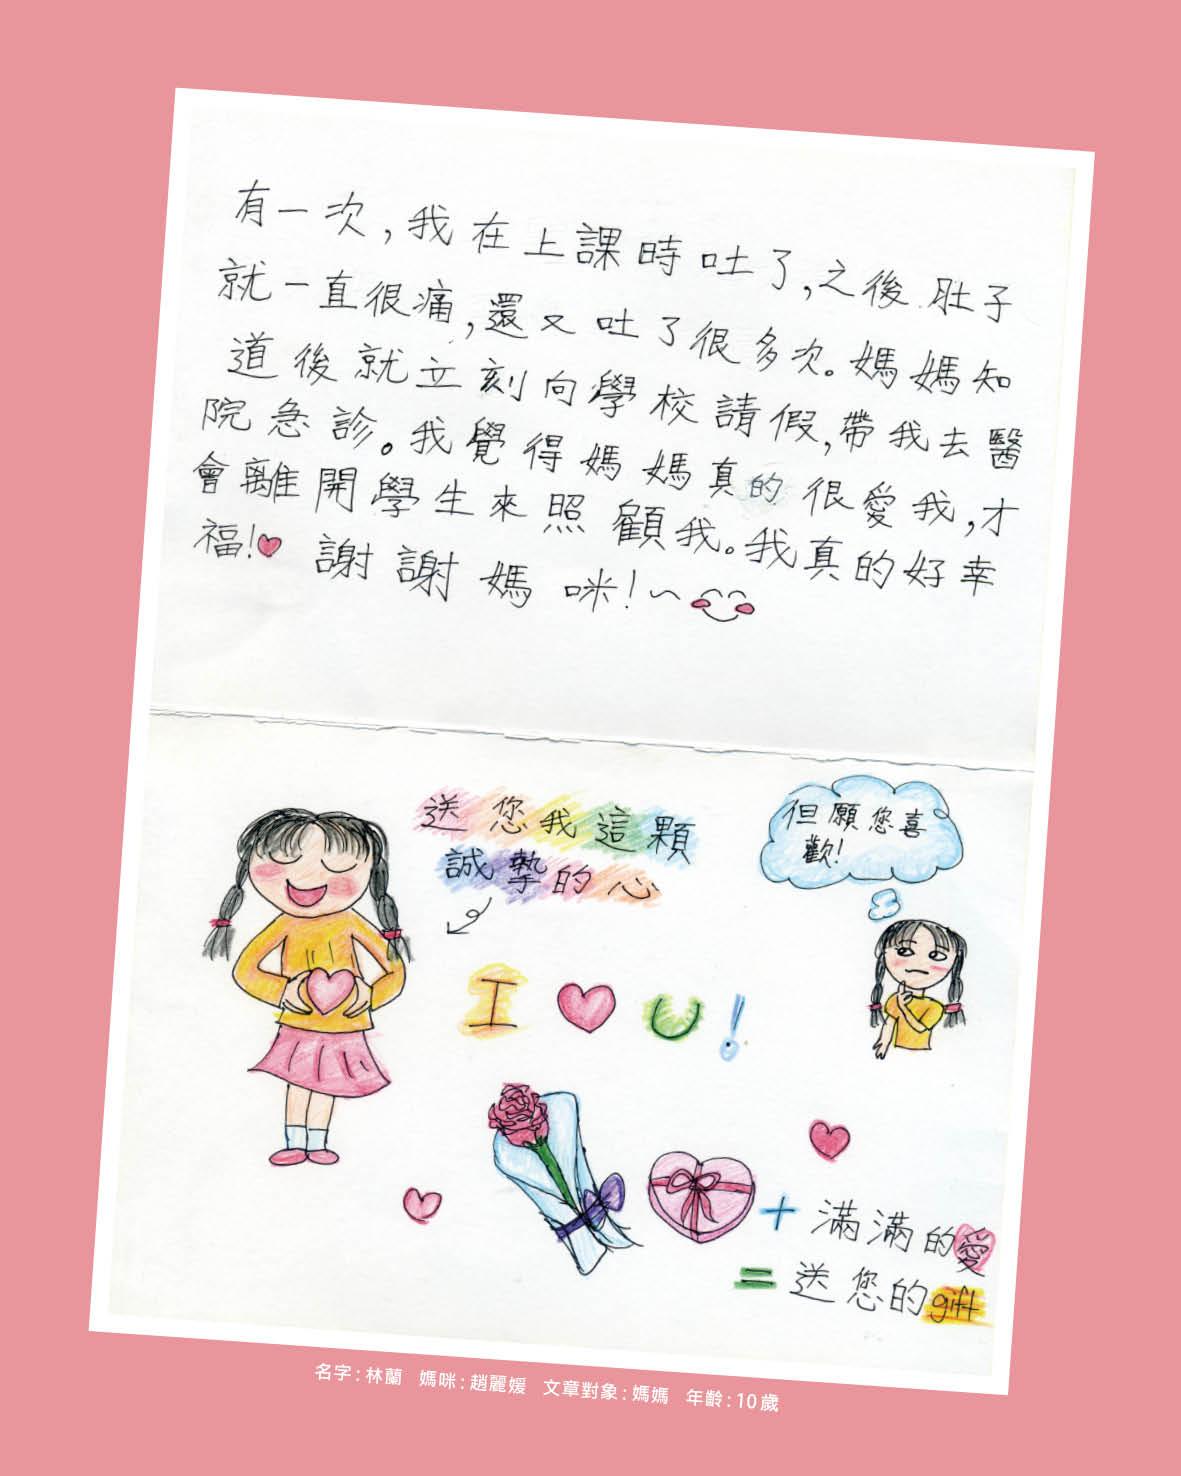 有一次,我在上課時吐了,之後肚子
就一直很痛,還又吐了很多次。媽媽知
道後就立刻向學校請假,帶我去醫
院急診。我覺得媽媽真的很愛我,才
會離開學生來照顧我。我真的好幸
福!♥ 謝謝媽咪!~
送您我這顆
誠摯的心
但願您喜
歡!
I ♥ U!
+ 滿滿的愛
= 送您的gift
名字:林蘭 媽咪:趙麗媛 文章對象:媽媽 年齡:10歲